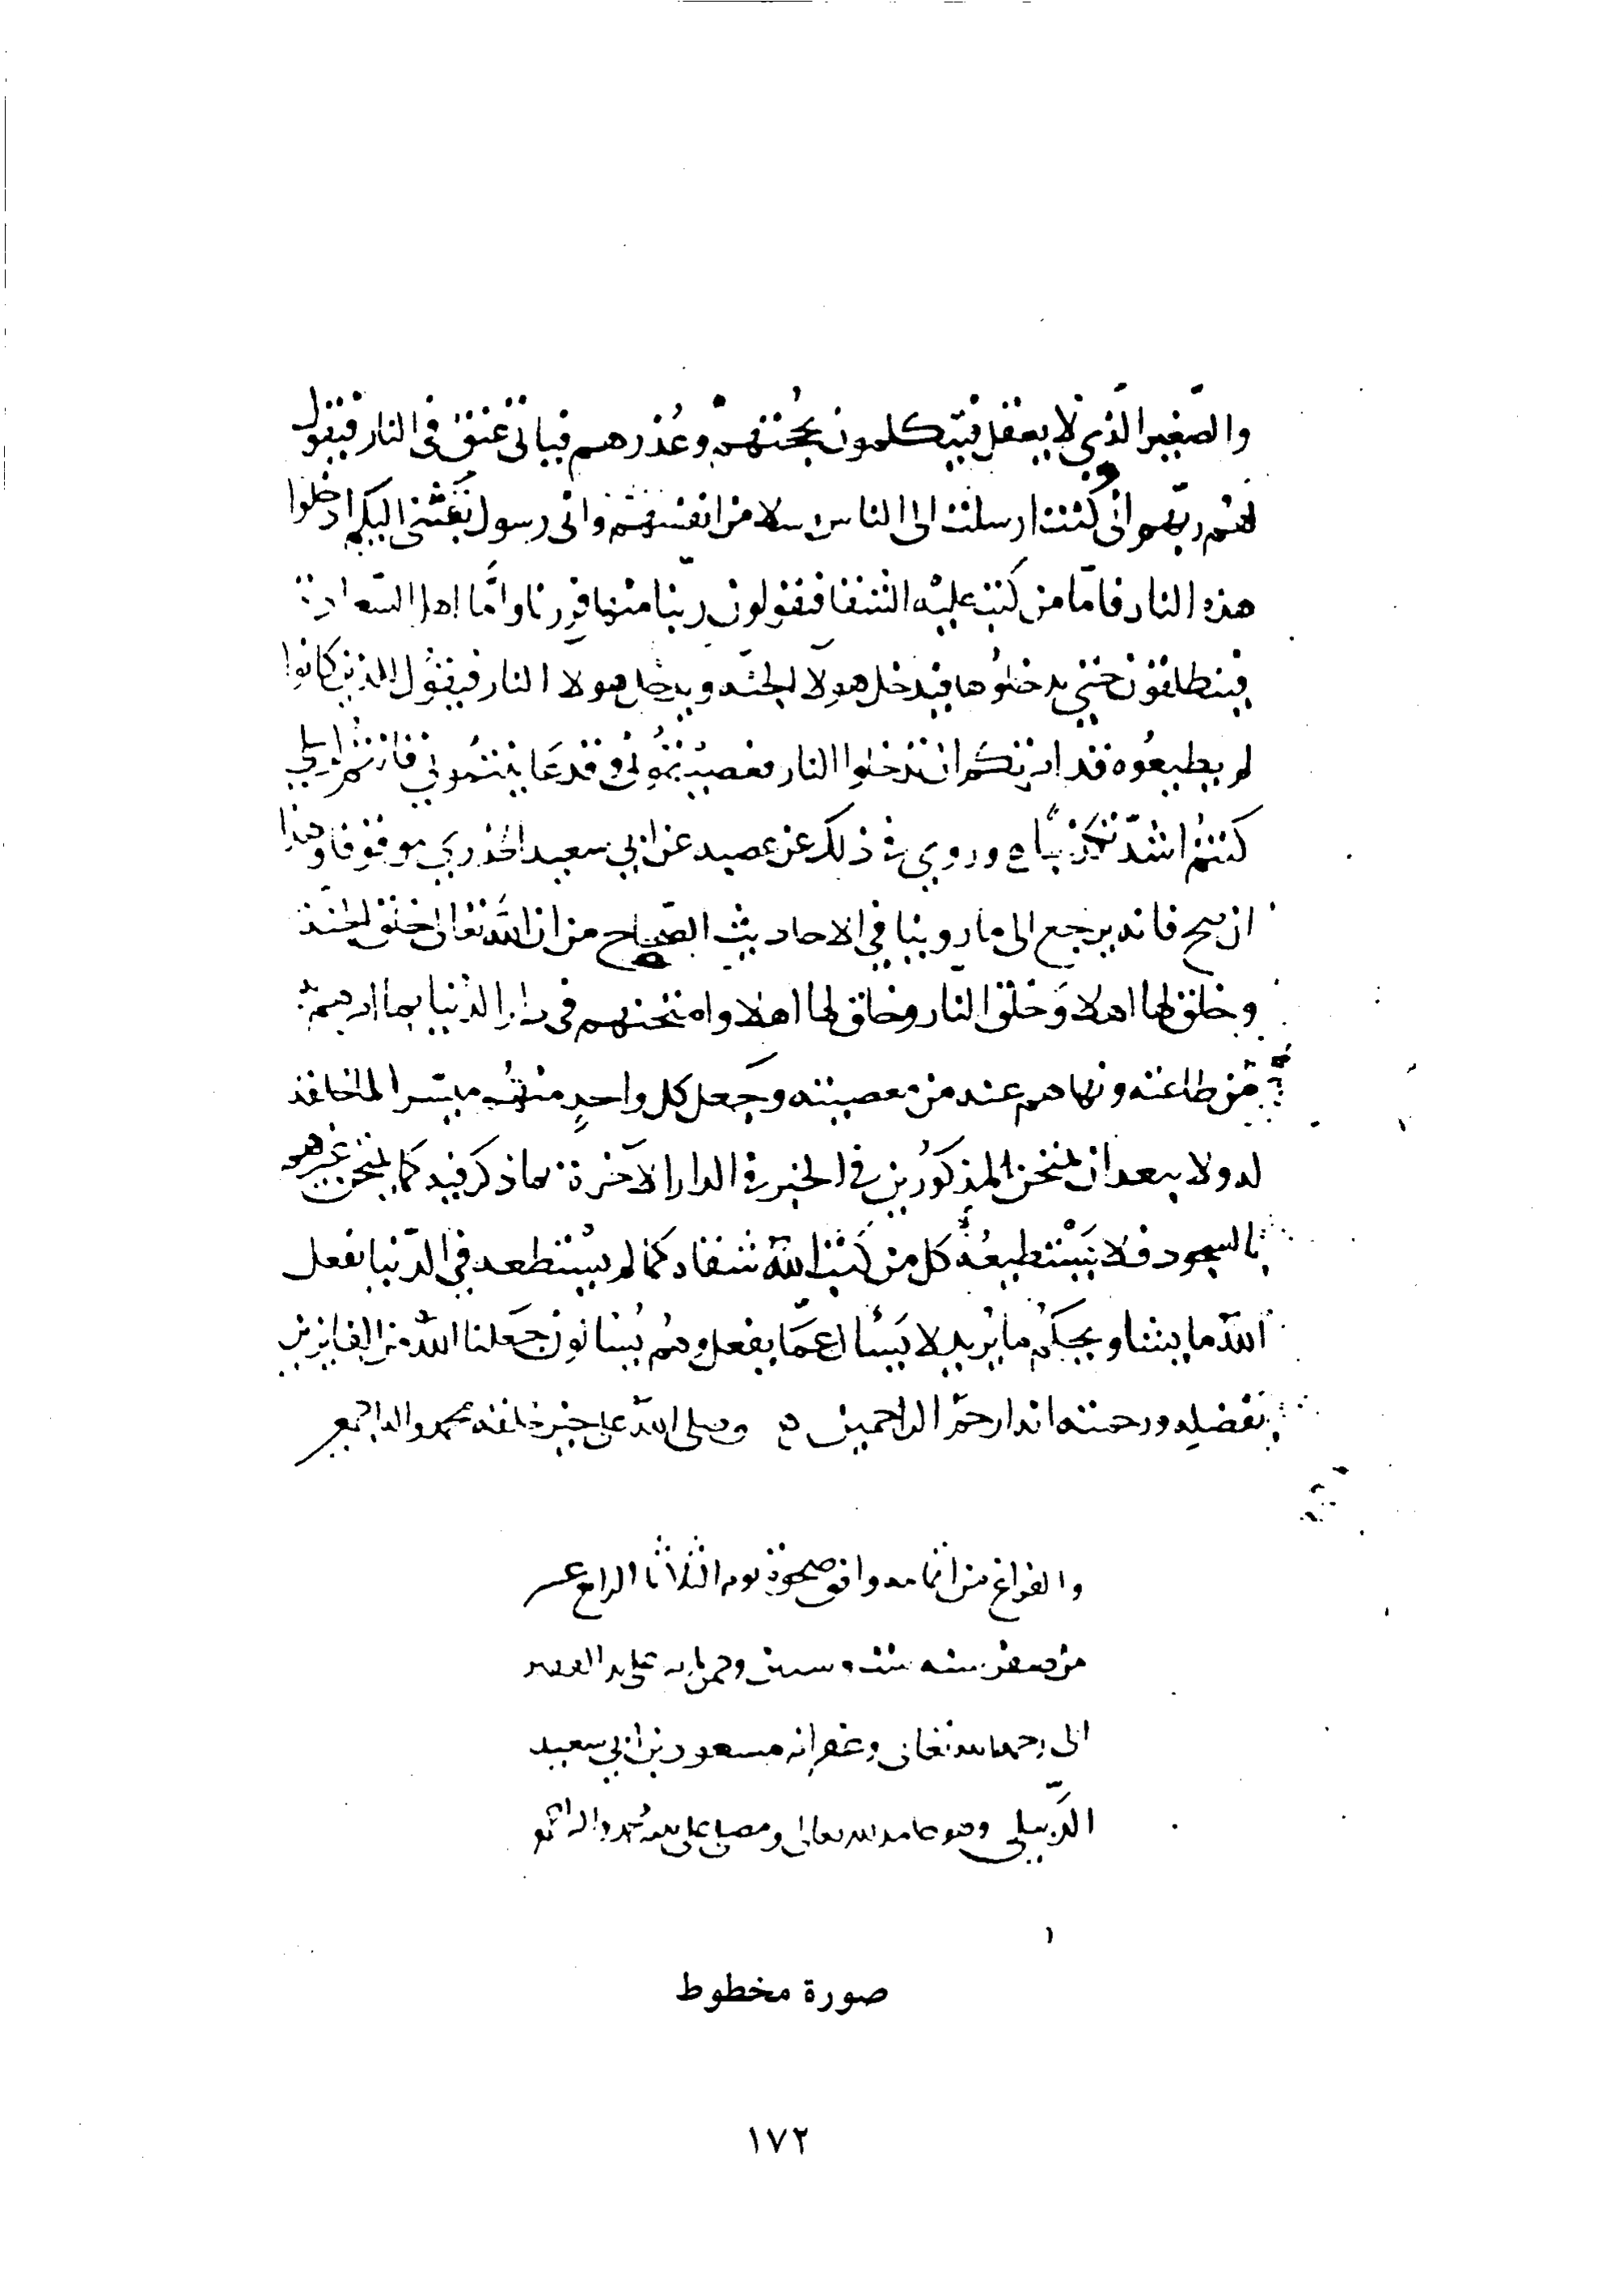 والصّغير الّذي لا يعقل فيتكلمون بحُجّتهم وعُذرهم فياتى عنق فى النار فيقول
لهُم ربّهم انى كنت ارسلت الى الناس رسلا من انفسهم وانى رسول نفسى اليكم ادخلوا
هذه النار فامّا من كتب عليه الشقا فيقولون ربّنا منها فررنا وامّا اهل السّعادة
فينطلقون حتى يدخلوُها فيدخل هولا الجنّه ويدخل هولا النار فيقُول للذين كانوا
لم يطيعُوه قد امرتكم ان تدخلوا النار فعصيتمُونى وقد عَاينتمُونى فانتم لرسلي
كنتمُ اشدّ تكذيبًا وروي في ذلك عن عطيه عن ابي سعيد الخذري موقوفا وهذا
ان صح فانه يرجع الى ما روينا في الاحاديث الصّحاح من ان الله تعالى خلق الجنّة
وخلق لها اهلا وَخلق النار وخلق لها اهلا وامتحنهم فى دار الدّنيا بما امرهم
من طاعته ونهاهم عنه من معصيته وجَعل كل واحدٍ منهُم ميسرا لما خلق
له ولا يبعد ان يمتحن المذكوُرين في الخبر في الدار الآخرة بما ذكر فيه كما يمتحن غيرهم
بالسجود فلا يَسْتطيعُهُ كل من كَتبَ اللهُ شقاه كما لم يسْتطعه في الدّنيا يفعل
اللهُ ما يشا ويحكُم ما يُريد لا يَسُال عمّا يفعل وهُم يُسالون جَعلنا اللهُ من الفايزين
بفضله ورحمته انه ارحمَ الراحمين وصلى الله على خير خلقه محمد واله اجمعين
والفراغ من اتمامه وافق ضحوة يوم الثلاثا الرابع عشر
من صفر سنه ست وستين وخمس مايه على يد العبد
الى رحمه الله تعالى وغفرانه مسعود بن ابي سعيد
الدَّبيلي وهو حامد لله تعالى ومصلي على نبيه محمد واله اجمع
صورة مخطوط
١٧٢